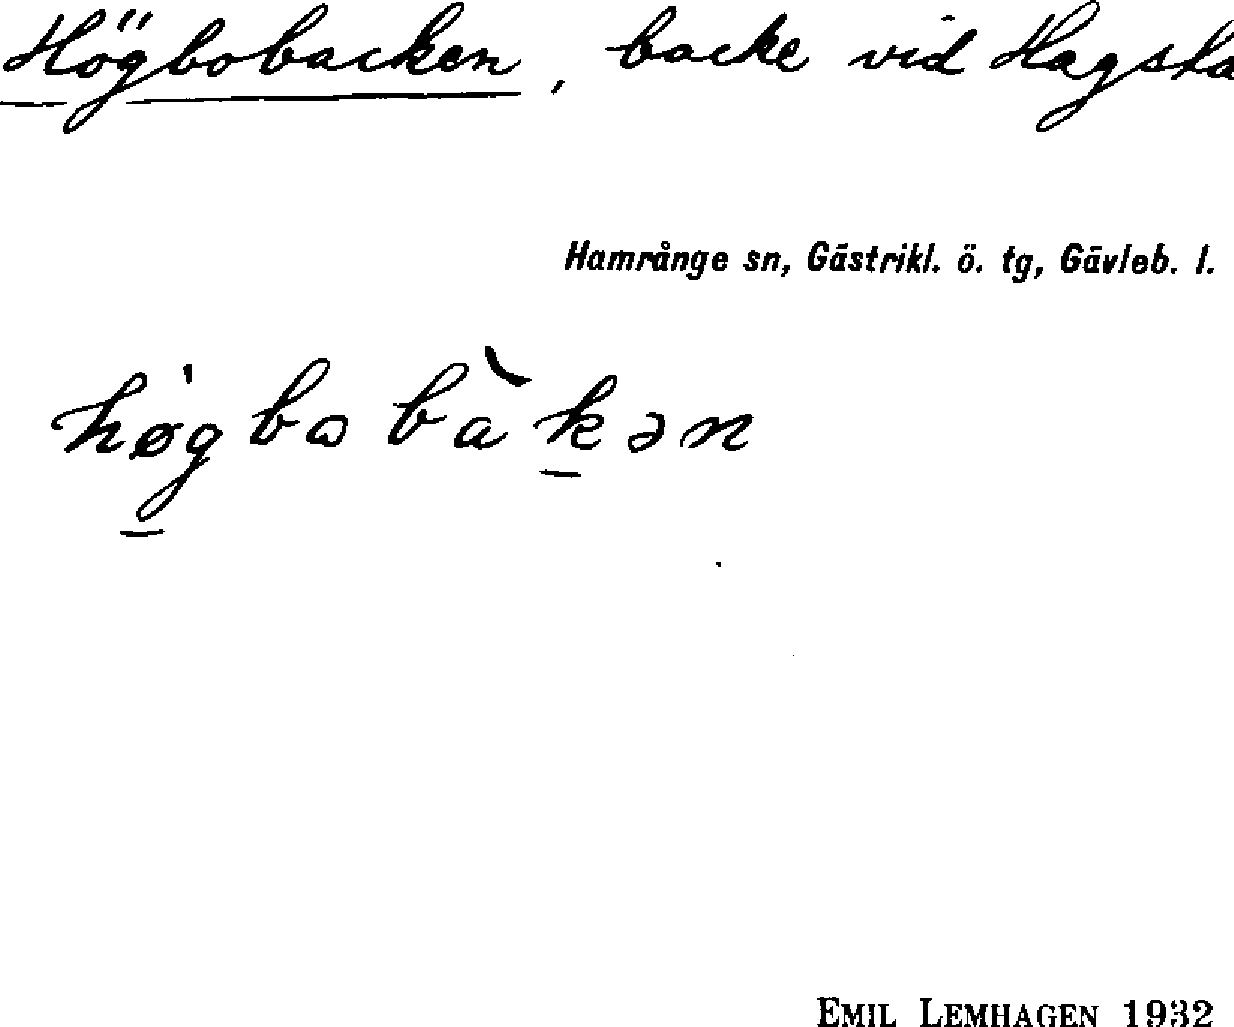 Högbobacken, backe vid Hagsta
Hamrånge sn, Gästrikl. ö. tg, Gävleb. l.
hø̀gbobàkən
EMIL LEMHAGEN 1932